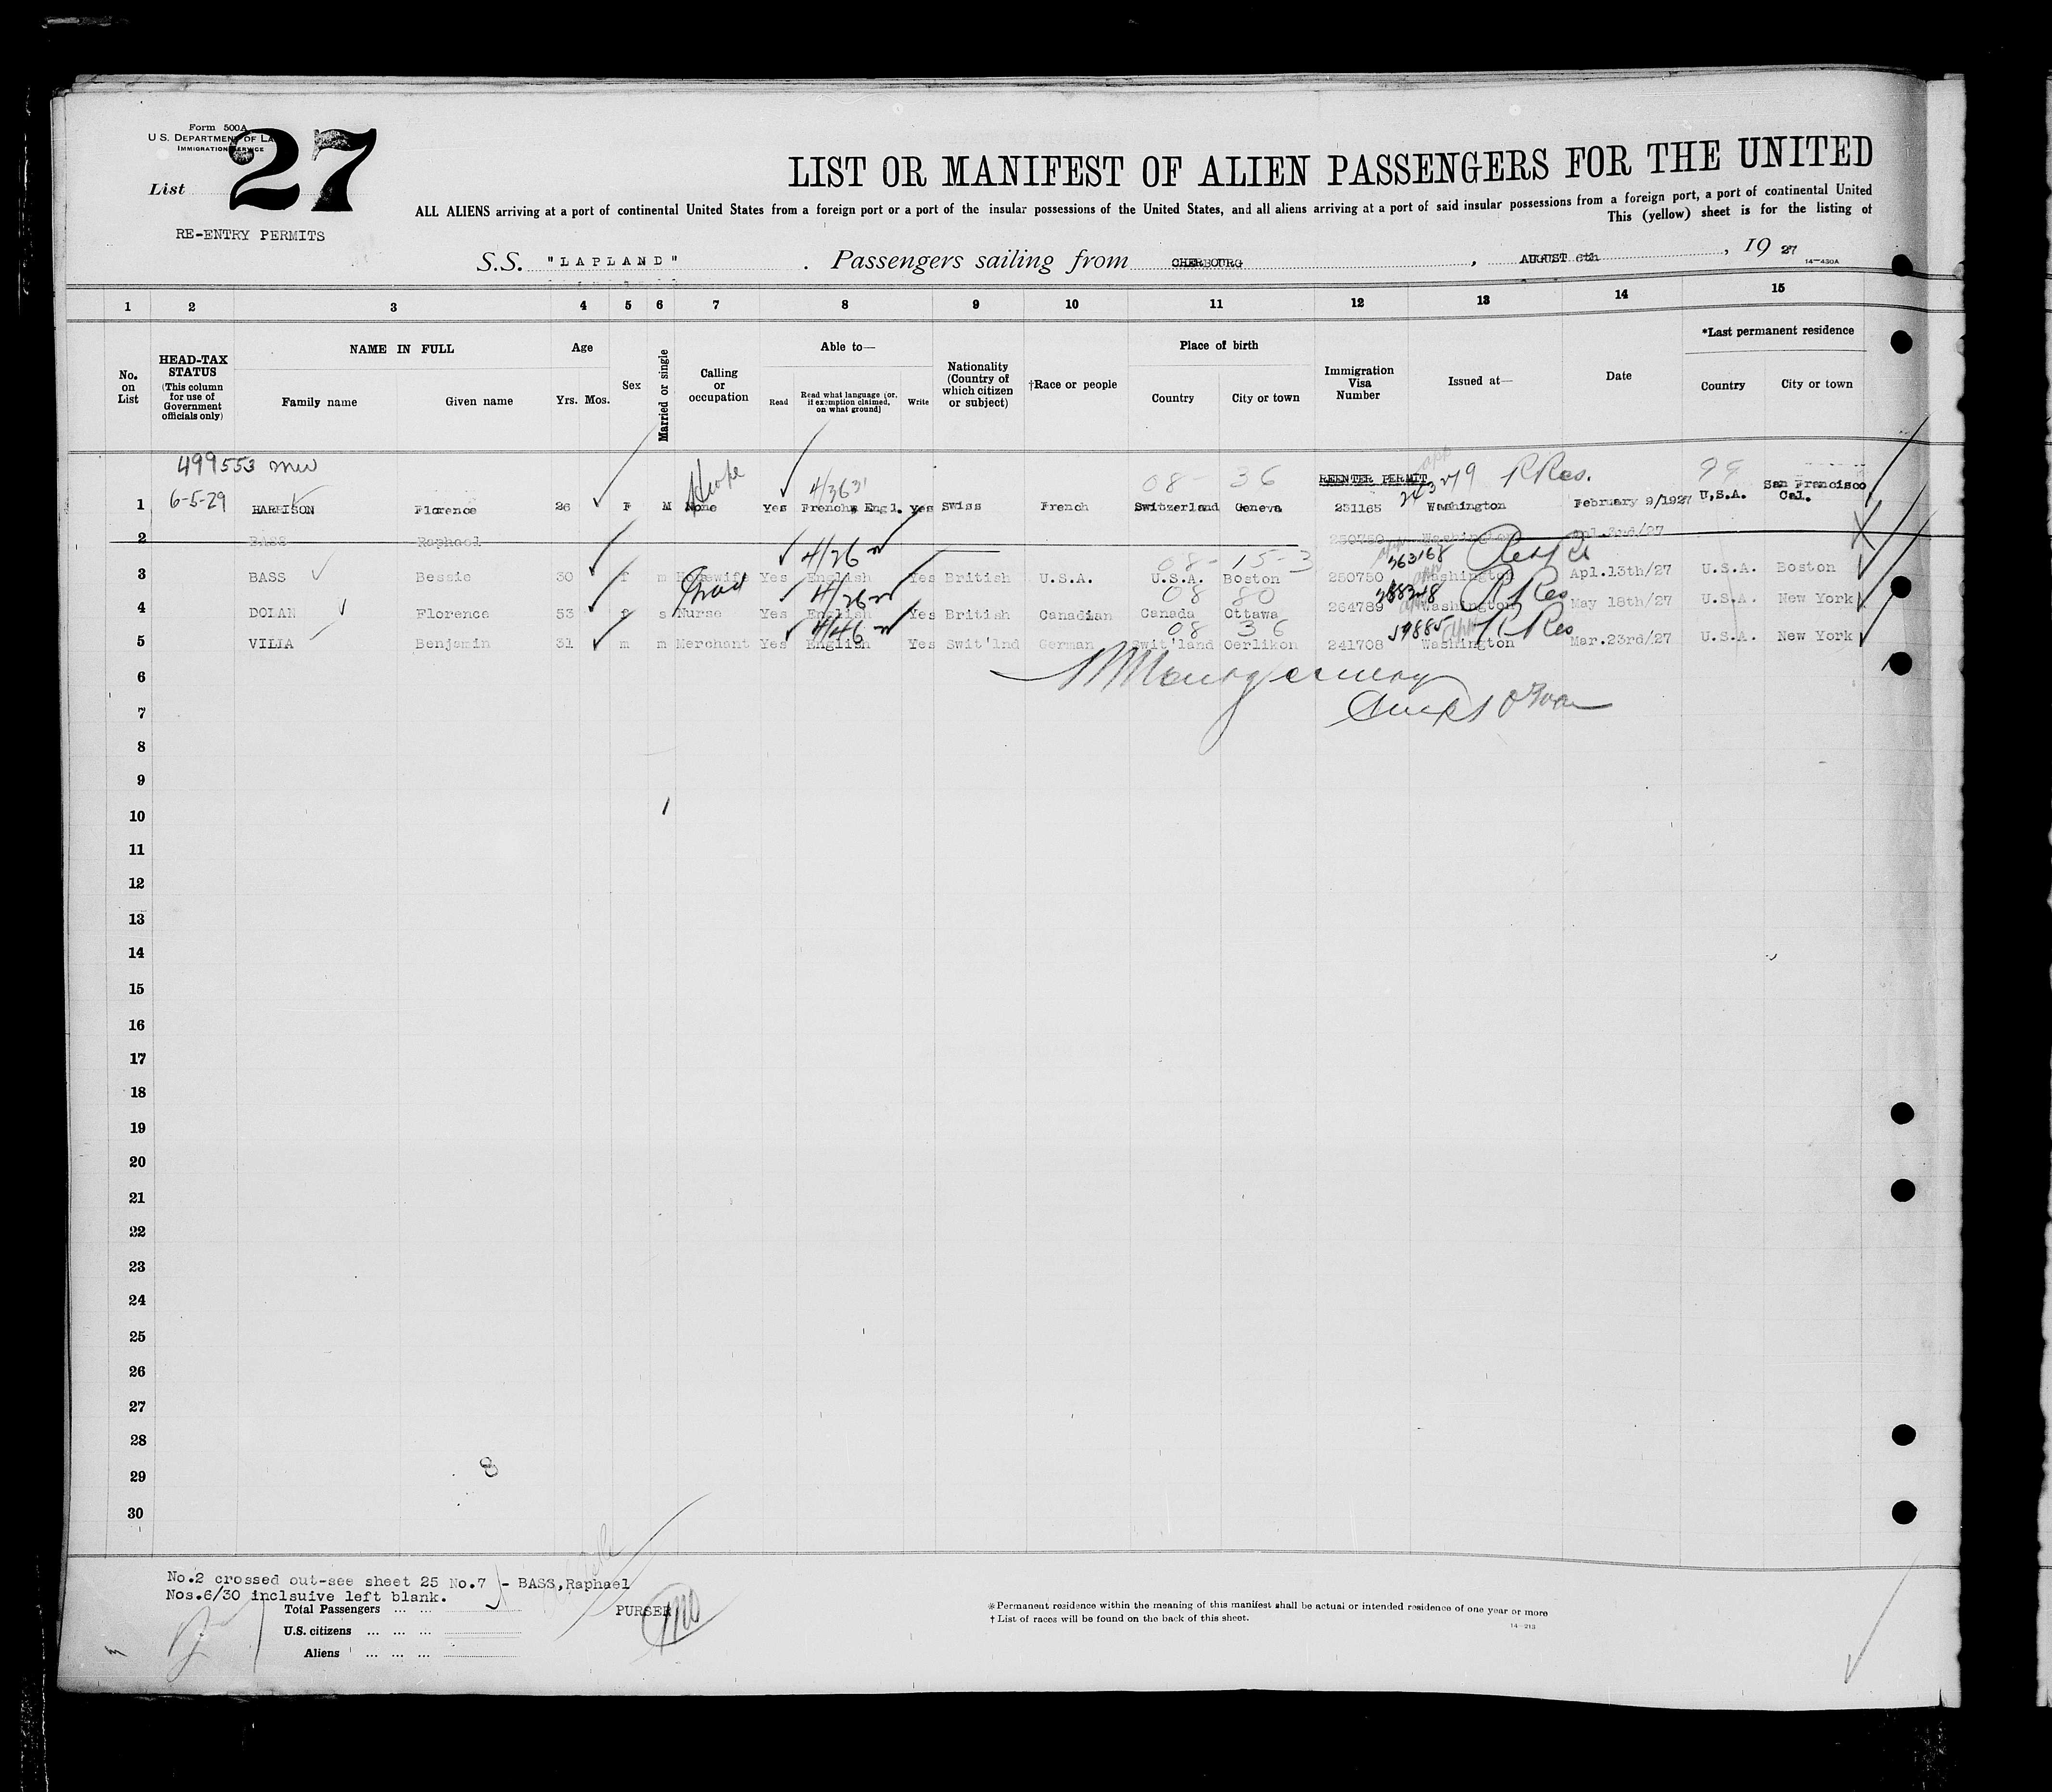 Form 500A
U.S. DEPARTMENT OF LA
IMMIGRATION SERVICE
List 27
RE-ENTRY PERMITS
LIST OR MANIFEST OF ALIEN PASSENGERS FOR THE UNITED
ALL ALIENS arriving at a port of continental United States from a foreign port or a port of the insular possessions of the United States, and all aliens arriving at a port of said insular possessions from a foreign port, a port of continental United
This (yellow) sheet is for the listing of
S.S. "LAPLAND" . Passengers sailing from CHERBOURG , AUGUST 6th , 19 27
14-430A
1 2 3 4 5 6 7 8 9 10 11 12 13 14 15
No. on List
HEAD-TAX STATUS (This column for use of Government officials only)
NAME IN FULL
Family name Given name
Age
Yrs. Mos.
Sex
Married or single
Calling or occupation
Able to—
Read Read what language [or, if exemption claimed, on what ground] Write
Nationality (Country of which citizen or subject)
†Race or people
Place of birth
Country City or town
Immigration Visa Number
Issued at—
Date
*Last permanent residence
Country City or town
499553 6-5-29
4/3631 08- 36 REENTER PERMIT R Res. 99
1 HARRISON Florence 26 F M None Yes French& Engl. Yes Swiss French Switzerland Geneva 231165 Washington February 9/1927 U.S.A. San Francisco Cal.
2 BASS Raphael 250750 Washington Apl.3rd/27
4/26 08- 15-3 363168
3 BASS Bessie 30 f m Housewife Yes English Yes British U.S.A. U.S.A. Boston 250750 Washington Apl.13th/27 U.S.A. Boston
4/26 08 80 R Res
4 DOLAN Florence 53 f s Nurse Yes English Yes British Canadian Canada Ottawa 264789 Washington May 18th/27 U.S.A. New York
4/46 08 36 59885 R Res
5 VILIA Benjamin 31 m m Merchant Yes English Yes Swit'lnd German Swit'land Oerlikon 241708 Washington Mar.23rd/27 U.S.A. New York
6
7
8
9
10
11
12
13
14
15
16
17
18
19
20
21
22
23
24
25
26
27
28
29
30
8
No.2 crossed out-see sheet 25 No.7 - BASS,Raphael
Nos.6/30 inclsuive left blank.
Total Passengers ... ...
PURSER
U.S. citizens ... ... ...
Aliens ... ... ...
*Permanent residence within the meaning of this manifest shall be actual or intended residence of one year or more
† List of races will be found on the back of this sheet.
14-213